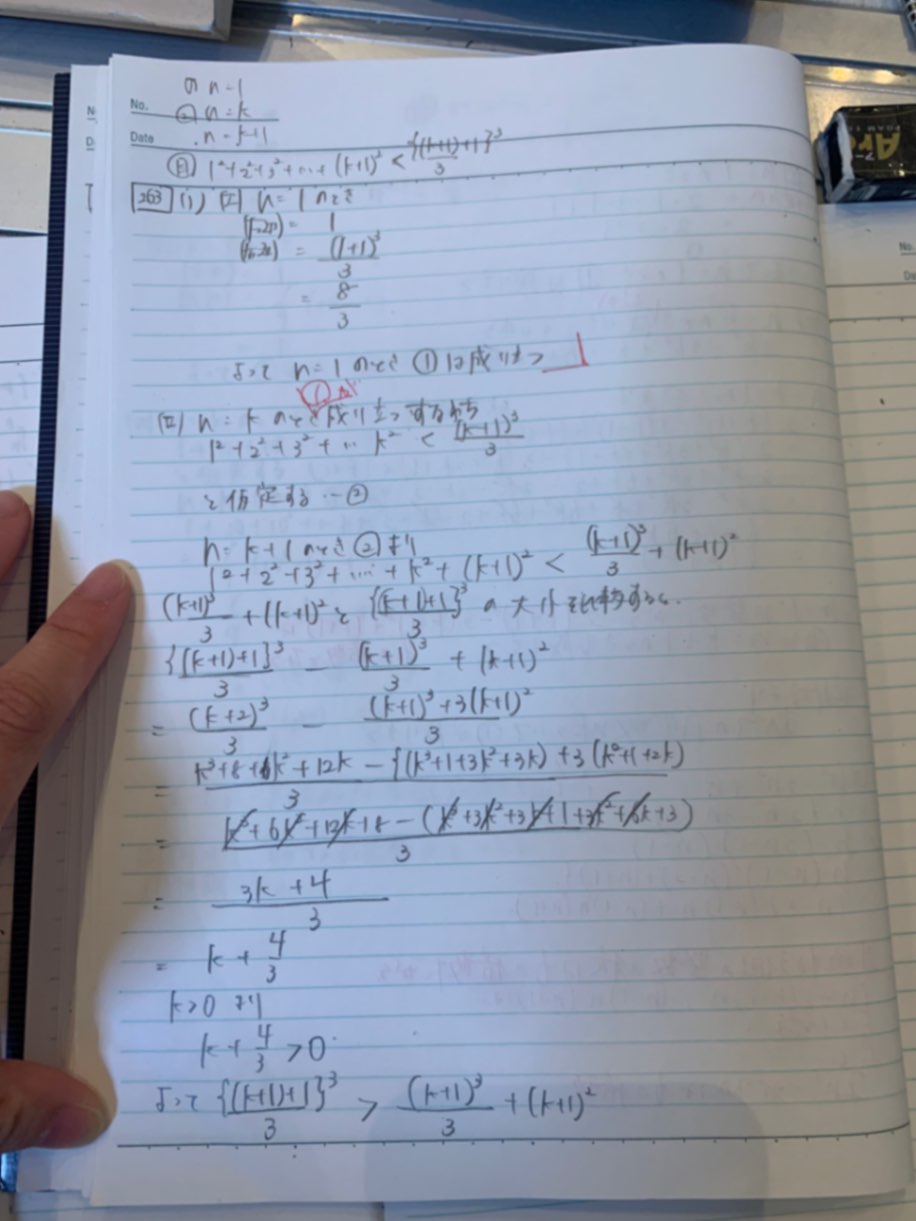 ① n=1
② n=k
n=k+1
No.
Date
㊐ 1²+2²+3²+…+(k+1)² < {(k+1)+1}³/3
263 (1) [I] n=1のとき
(左辺) = 1
(右辺) = (1+1)³/3
= 8/3
よって n=1のとき ①は成り立つ
[II] n=kのとき成り立つすなわち
①が
1²+2²+3²+…k² < (k+1)³/3
と仮定する …②
n=k+1のとき②より
1²+2²+3²+…+k²+(k+1)² < (k+1)³/3+(k+1)²
(k+1)³/3+(k+1)²と{(k+1)+1}³/3の大小を比較すると
{(k+1)+1}³/3 - (k+1)³/3 + (k+1)²
= (k+2)³/3 - (k+1)³+3(k+1)²/3
= k³+8+6k²+12k-{(k³+1+3k²+3k)+3(k²+1+2k)/3
= k³+6k²+12k+8-(k³+3k²+3k+1+3k²+6k+3)/3
= 3k+4/3
= k+4/3
k>0より
k+4/3>0
よって {(k+1)+1}³/3 > (k+1)³/3+(k+1)²
No.